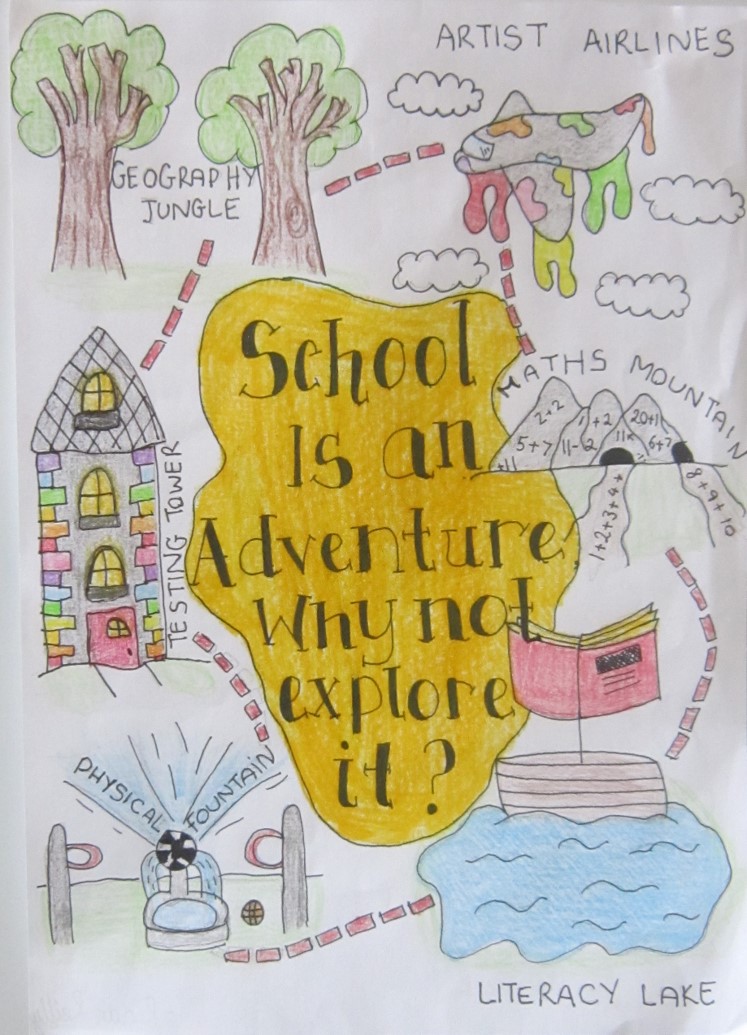 ARTIST AIRLINES
GEOGRAPHY
JUNGLE
School
Is an
Adventure,
Why not
explore
it?
MATHS MOUNTAIN
2+2
1+2
20+1
5+7
11-2
11x
6+7
1+2+3+4+
8+9+10
TESTING TOWER
PHYSICAL FOUNTAIN
LITERACY LAKE